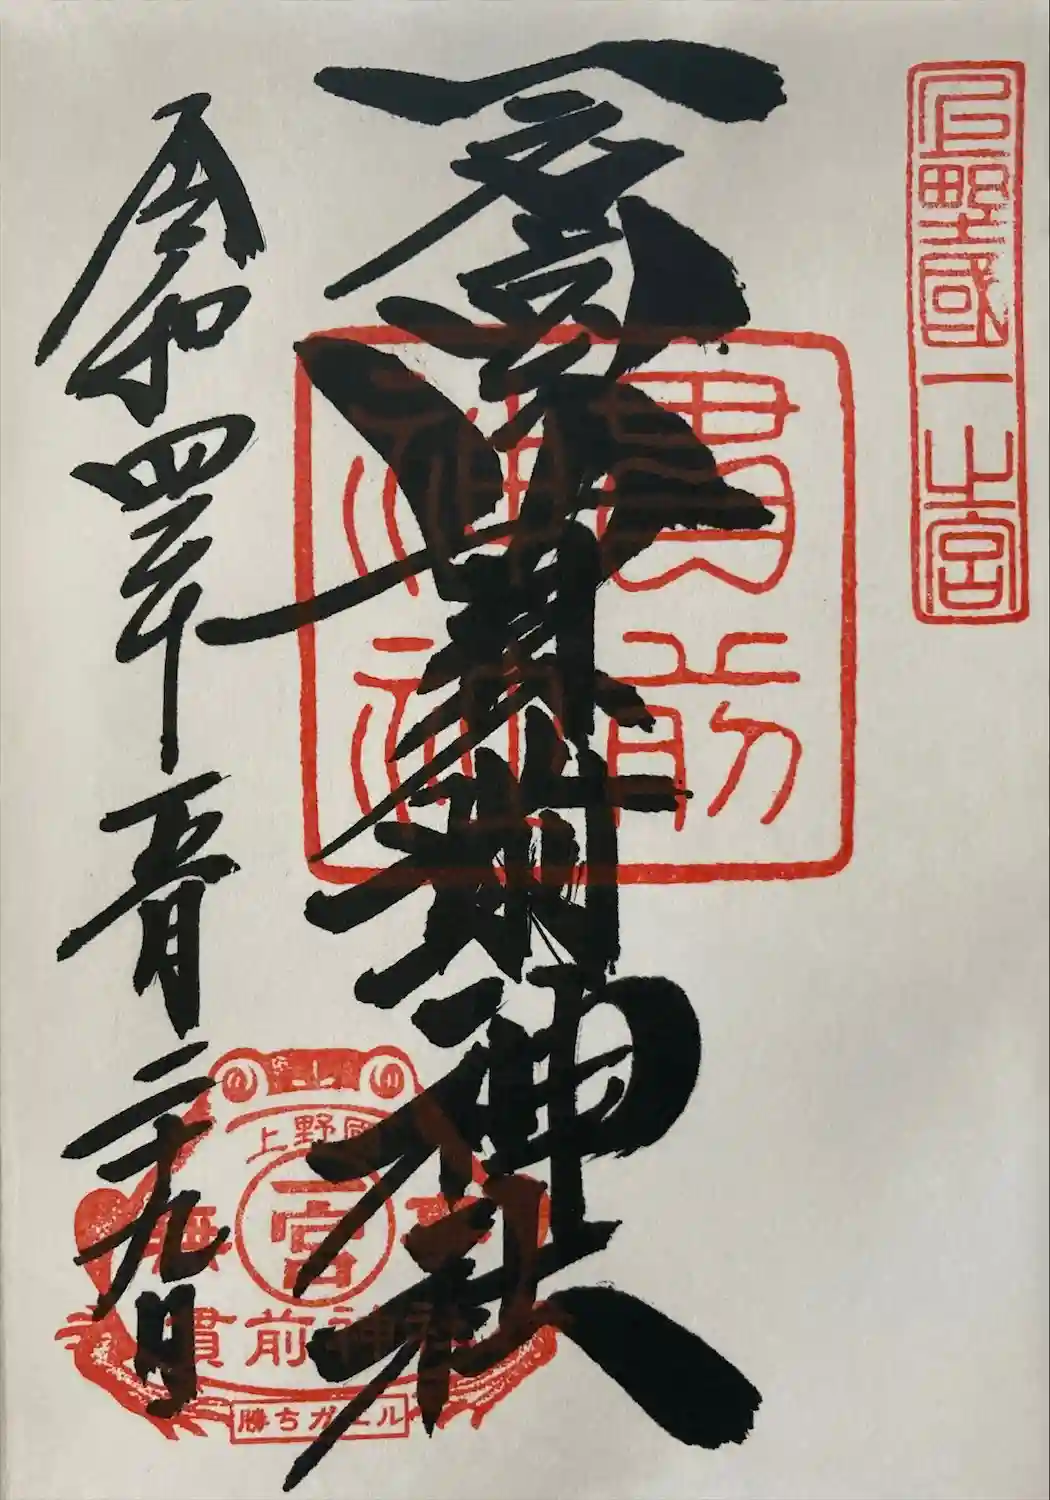 上野國一之宮
貫前神社
令和四年五月二十九日
貫前
上野國
一宮
無事
貫前神社
勝ちガエル